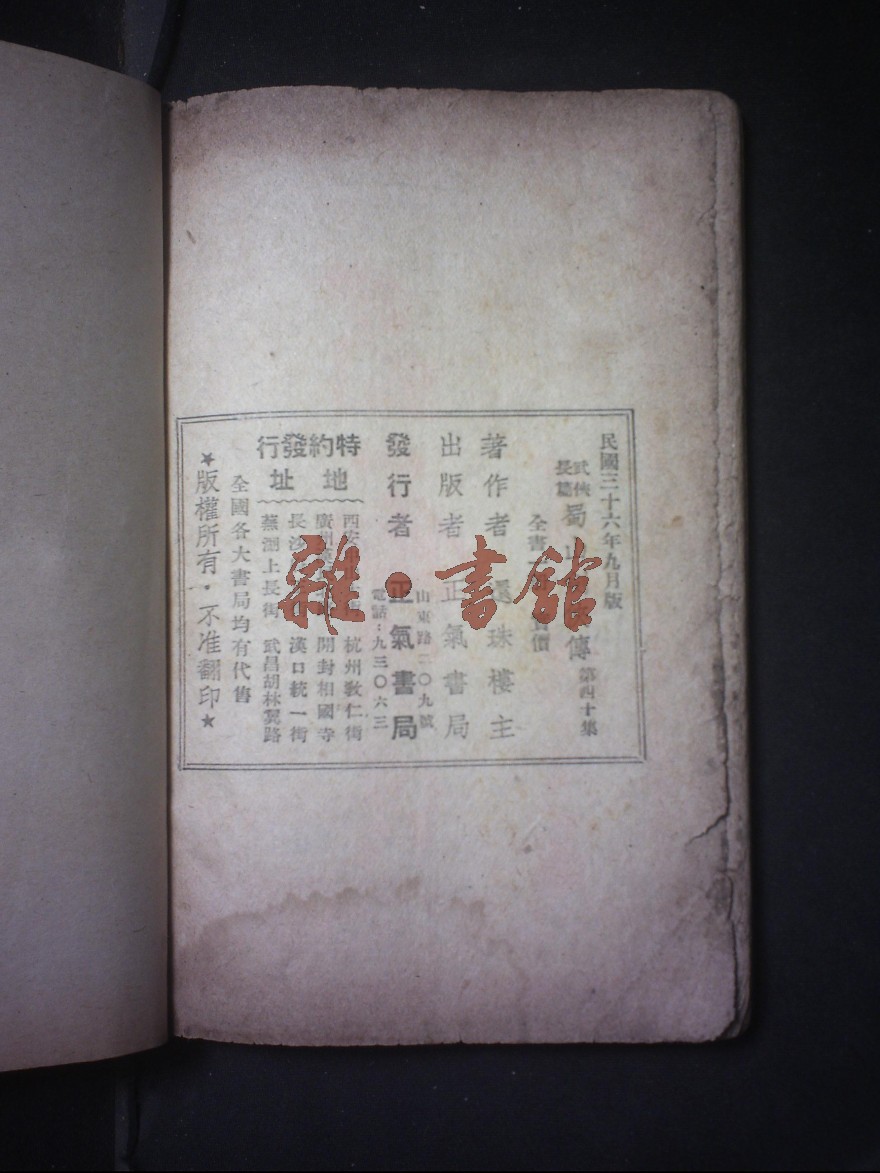 民國三十六年九月版
武俠長篇 蜀山 傳 第四十集
全書 價
著作者 還珠樓主
出版者 正氣書局
山東路二〇九號
發行者 正氣書局
電話：九三〇六三
特約發行
地址
西安 杭州敎仁街
廣州 開封相國寺
長沙 漢口統一街
蕪湖上長街 武昌胡林翼路
全國各大書局均有代售
★版權所有·不准翻印★
雜·書館